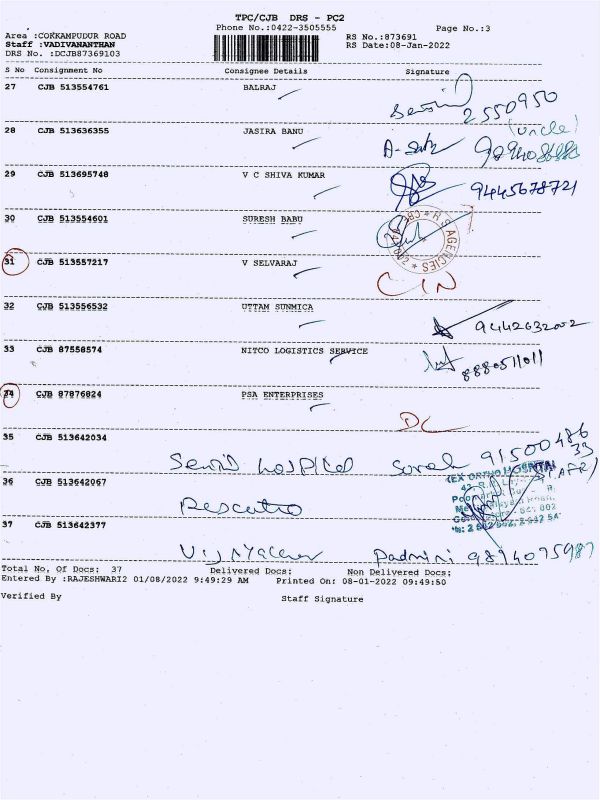 TPC/CJB DRS - PC2
Phone No.:0422-3505555 Page No.:3
Area :COKKAMPUDUR ROAD RS No.:873691
Staff :VADIVANANTHAN RS Date:08-Jan-2022
DRS No. :DCJB87369103
S No Consignment No Consignee Details Signature
27 CJB 513554761 BALRAJ
2550950
(uncle)
28 CJB 513636355 JASIRA BANU
29 CJB 513695748 V C SHIVA KUMAR
9445678721
30 CJB 513554601 SURESH BABU
H.S AGENCIES
31 CJB 513557217 V SELVARAJ
CIN
32 CJB 513556532 UTTAM SUNMICA
9442632002
33 CJB 87558574 NITCO LOGISTICS SERVICE
8880511011
34 CJB 87876824 PSA ENTERPRISES
DC
35 CJB 513642034
hospital 91500486
33
36 CJB 513642067
ORTHO HOSPITAL
37 CJB 513642377
Padmini 9894095987
Total No. Of Docs: 37 Delivered Docs: Non Delivered Docs:
Entered By :RAJESHWARI2 01/08/2022 9:49:29 AM Printed On: 08-01-2022 09:49:50
Verified By Staff Signature